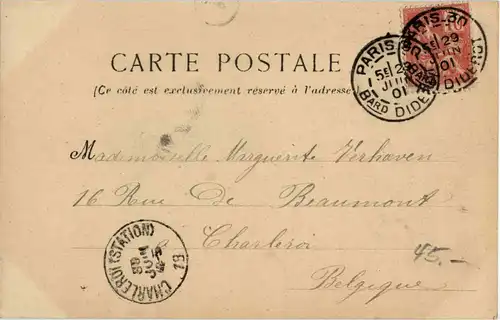 CARTE POSTALE
(Ce côté est exclusivement réservé à l'adresse
PARIS. 30
5E 29
JUIN
01
BARD DIDEROT
PARIS
5E 29
JUIN
01
BARD DIDEROT
Mademoiselle Marguerite Verhaven
16 Rue De Beaumont
à Charleroi
Belgique
45.-
CHARLEROI (STATION)